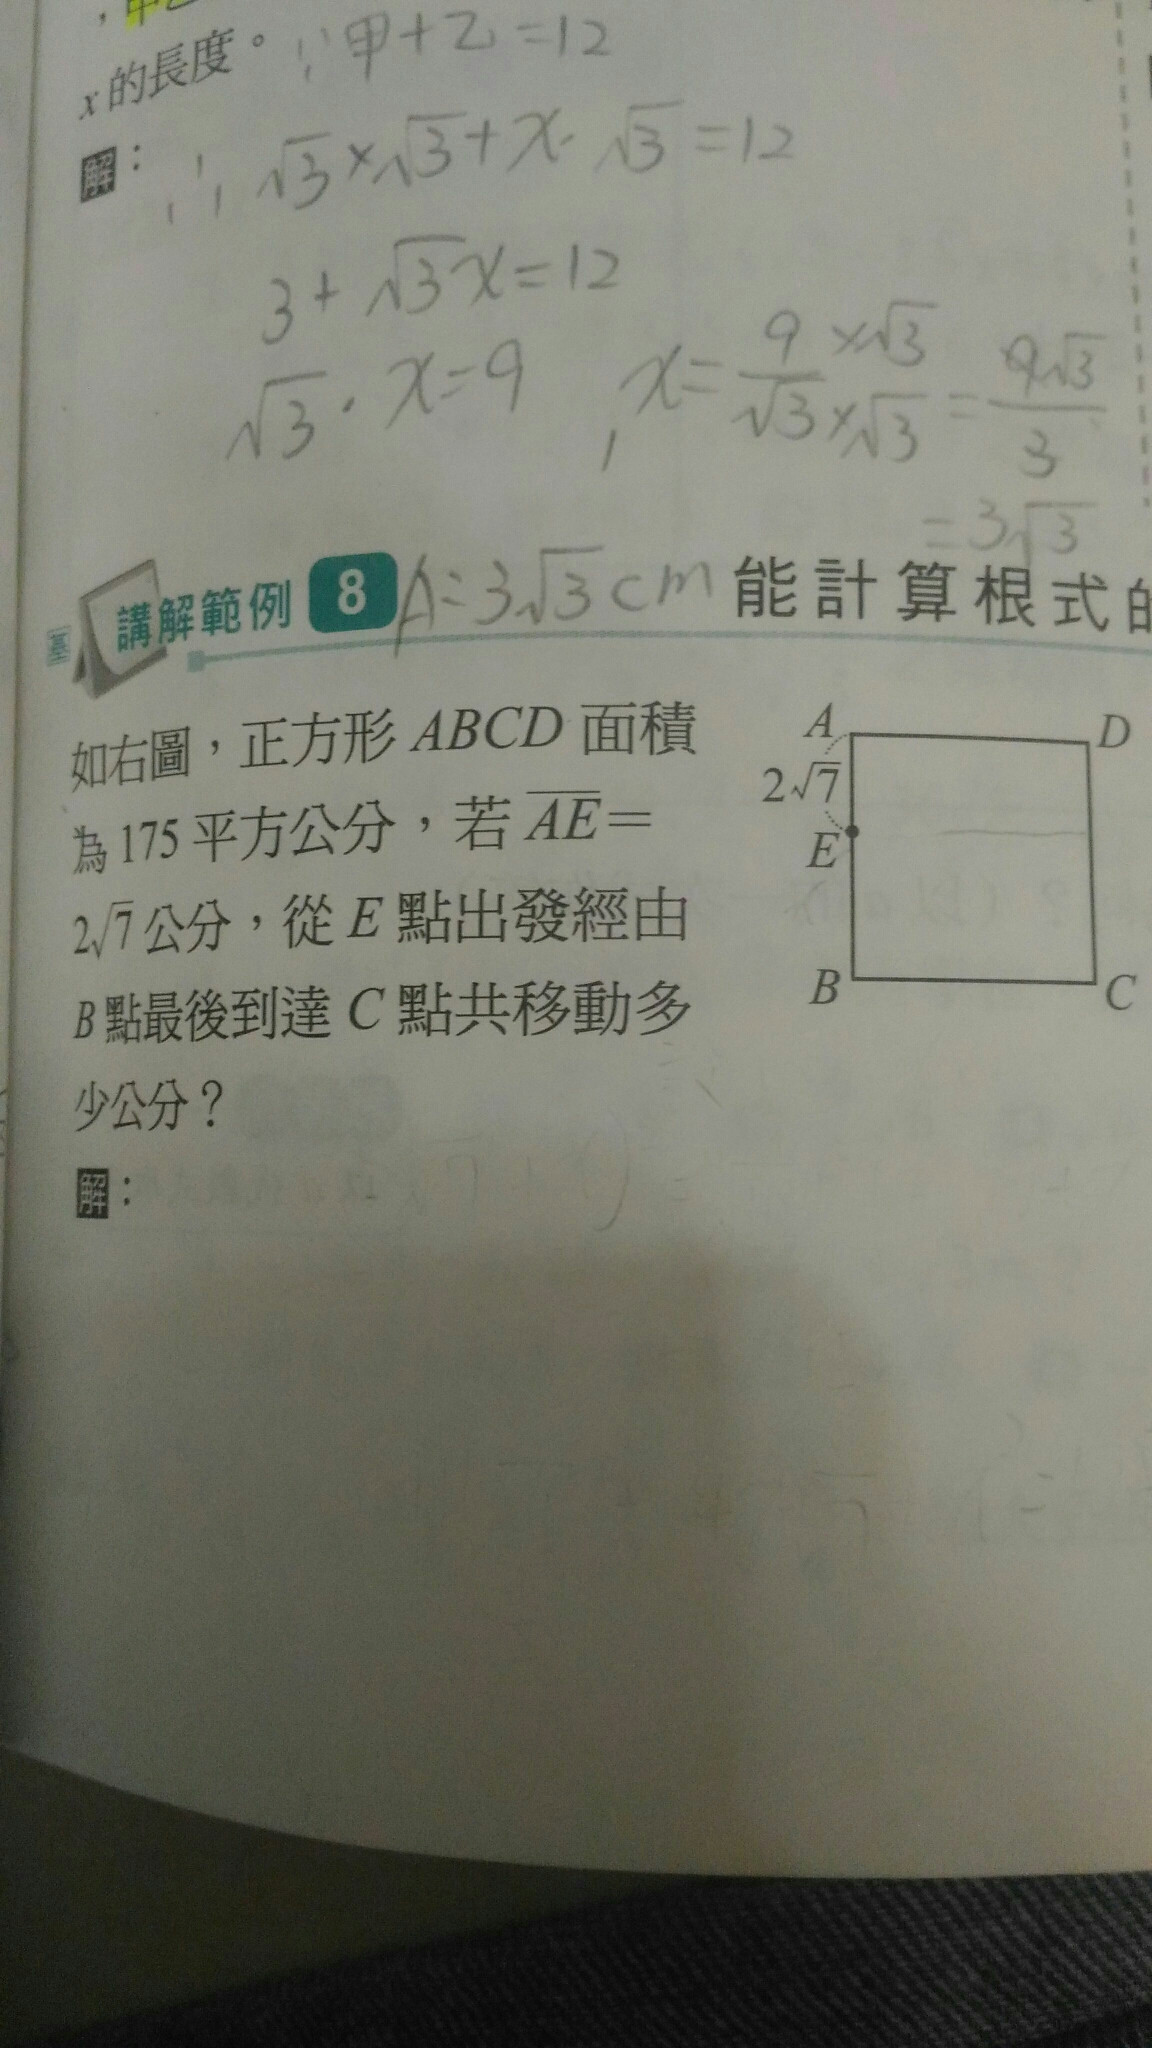 x的長度。 ∵甲+乙=12
解： ∴ √3×√3+x·√3=12
3+√3x=12
√3·x=9, x=9×√3/√3×√3=9√3/3
=3√3
基 講解範例 8 A:3√3cm 能計算根式的
如右圖，正方形 ABCD 面積
為 175 平方公分，若 A̅E̅=
2√7公分，從 E 點出發經由
B點最後到達 C 點共移動多
少公分？
解：
A D
2√7
E
B C